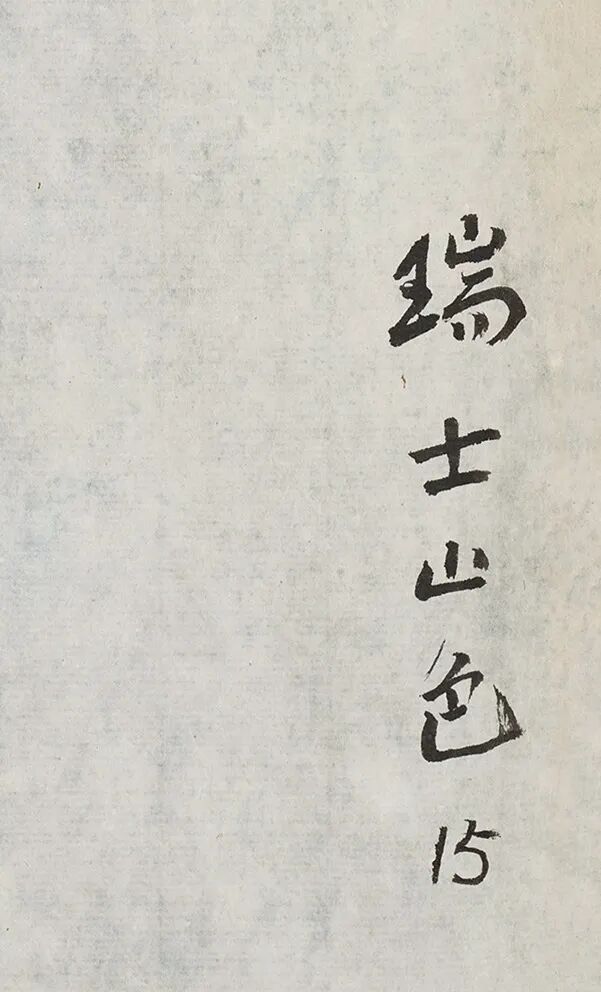 瑞士山色15